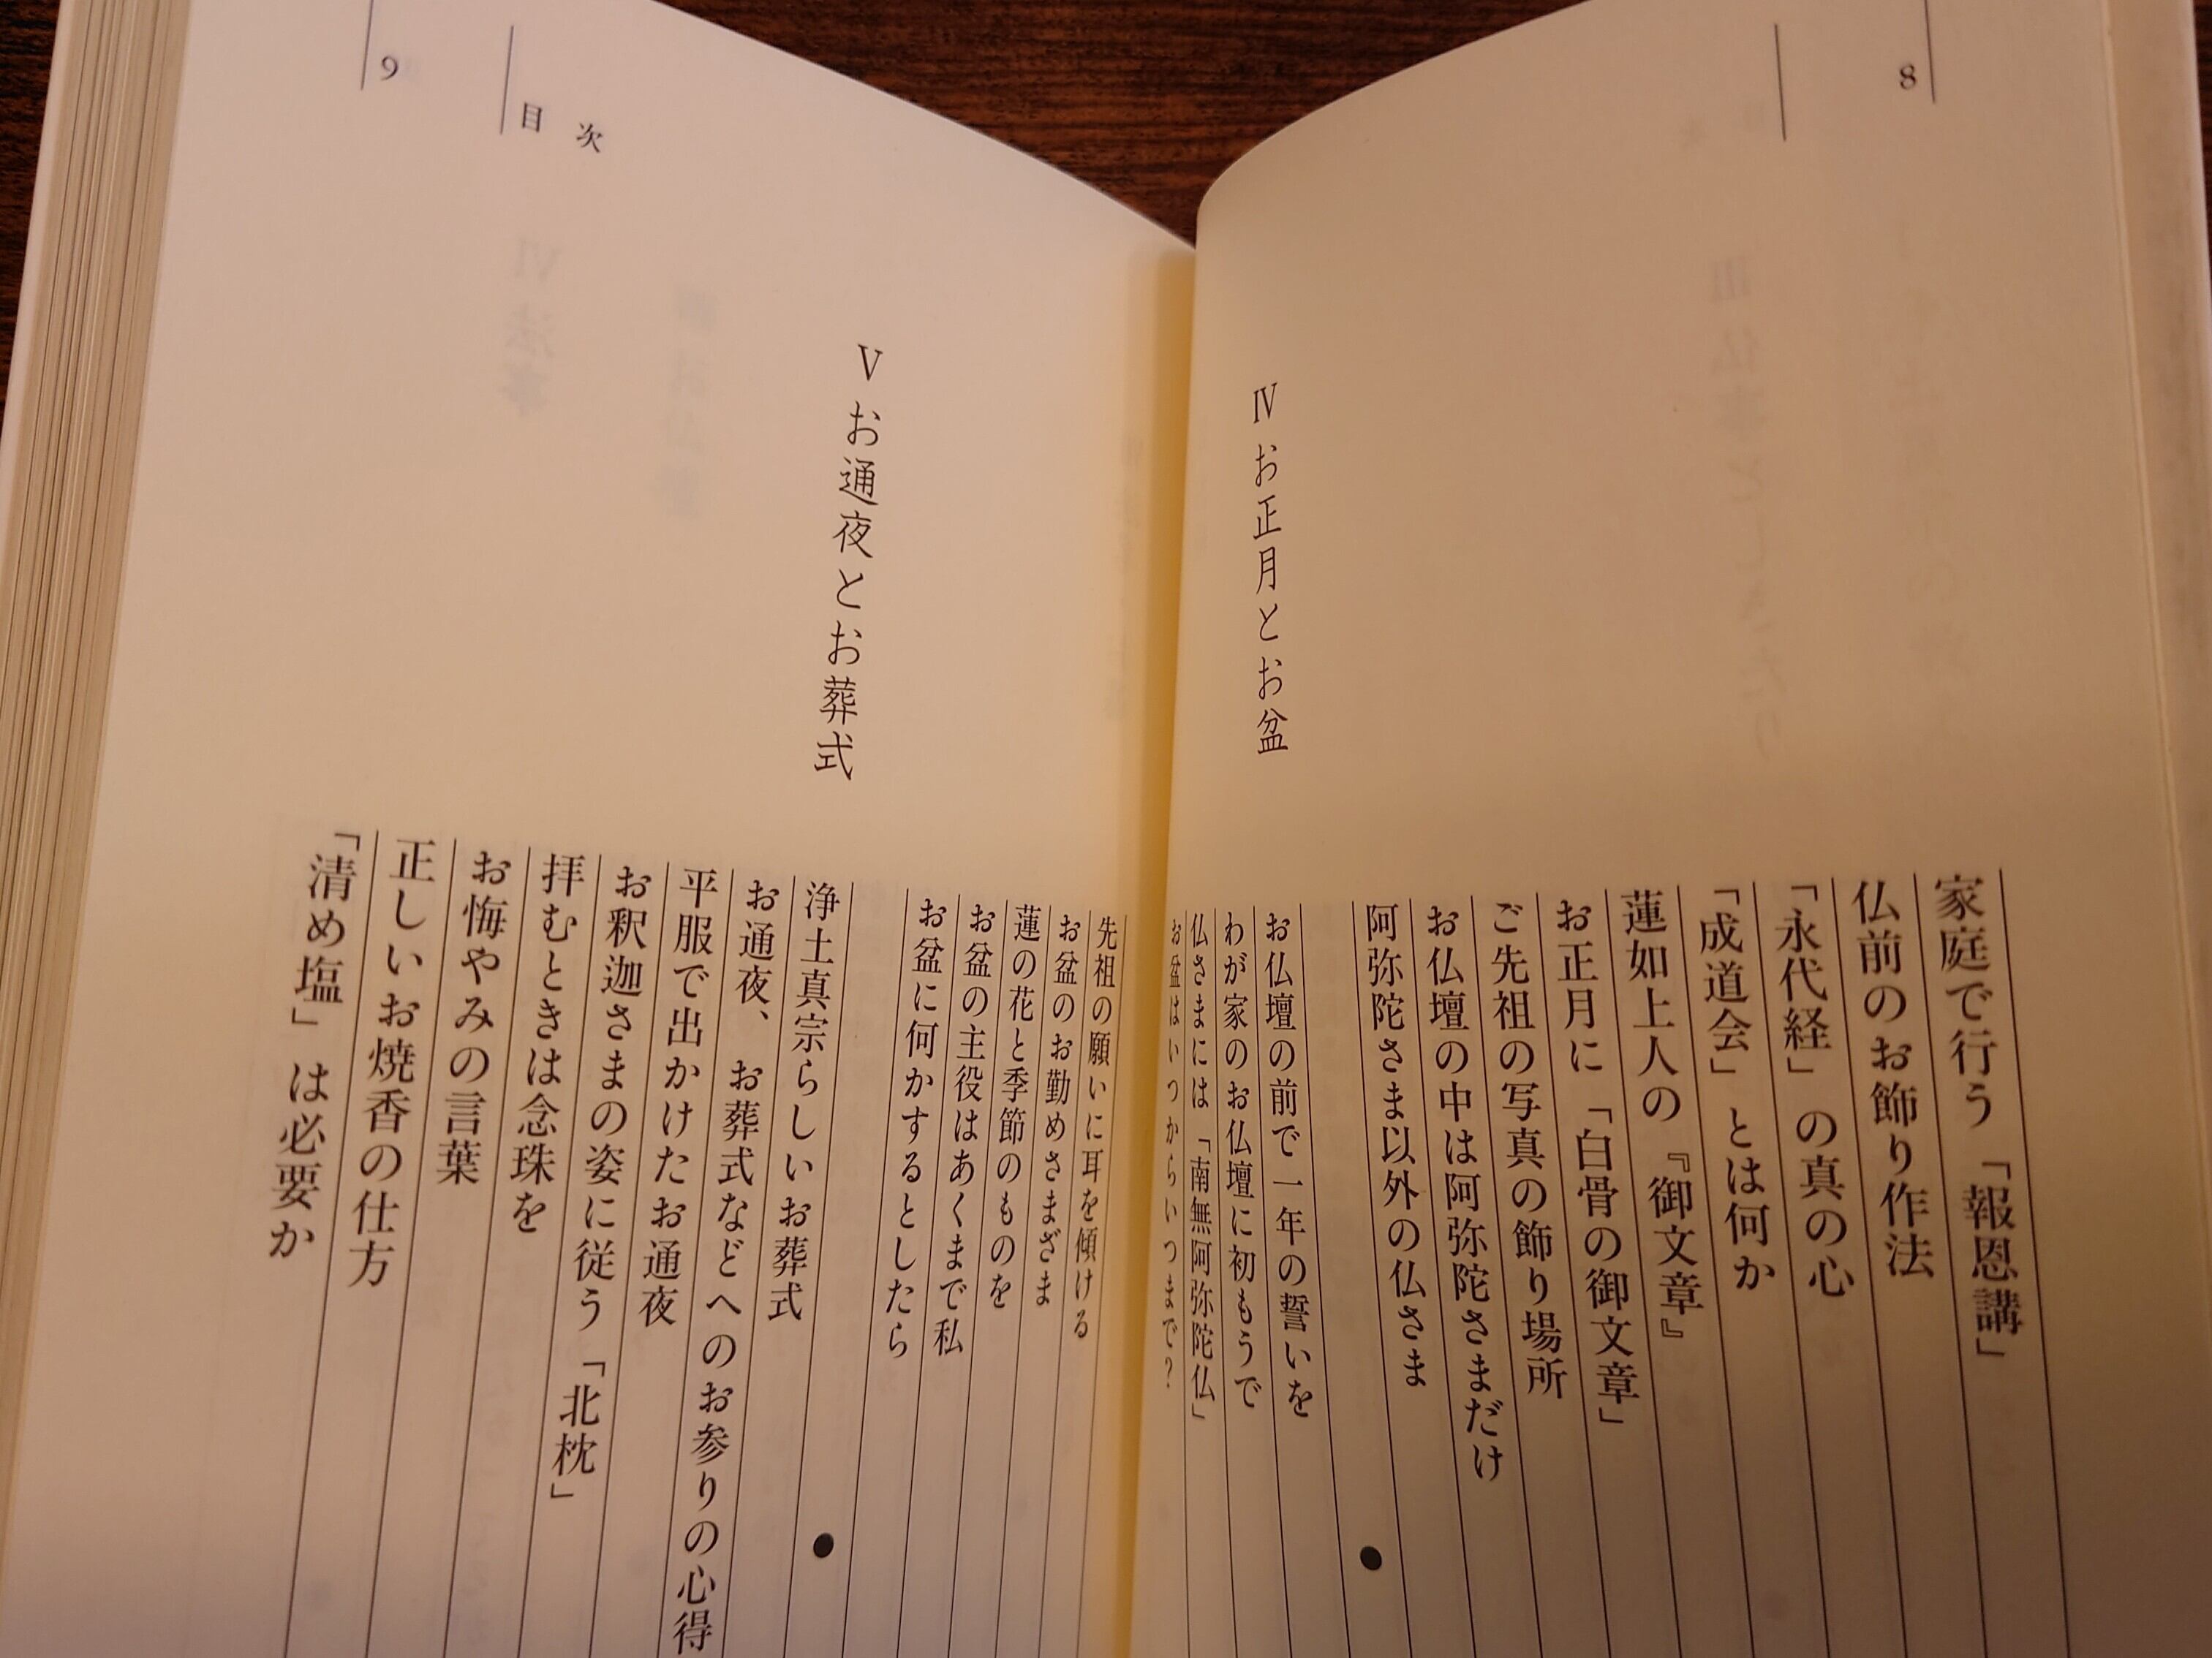 8
家庭で行う「報恩講」
仏前のお飾り作法
「永代経」の真の心
「成道会」とは何か
蓮如上人の『御文章』
お正月に「白骨の御文章」
ご先祖の写真の飾り場所
お仏壇の中は阿弥陀さまだけ
阿弥陀さま以外の仏さま
Ⅳ お正月とお盆
お仏壇の前で一年の誓いを
わが家のお仏壇に初もうで
仏さまには「南無阿弥陀仏」
お盆はいつからいつまで？
先祖の願いに耳を傾ける
お盆のお勤めさまざま
蓮の花と季節のものを
お盆の主役はあくまで私
お盆に何かするとしたら
Ⅴ お通夜とお葬式
浄土真宗らしいお葬式
お通夜、お葬式などへのお参りの心得
平服で出かけたお通夜
お釈迦さまの姿に従う「北枕」
拝むときは念珠を
お悔やみの言葉
正しいお焼香の仕方
「清め塩」は必要か
目次
9